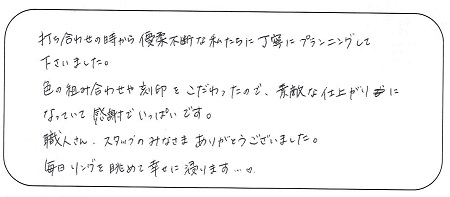 打ち合わせの時から優柔不断な私たちに丁寧にプランニングして
下さいました。
色の組み合わせや刻印をこだわったので、素敵な仕上がりに
なっていて感謝でいっぱいです。
職人さん、スタッフのみなさまありがとうございました。
毎日リングを眺めて幸せに浸ります…♡